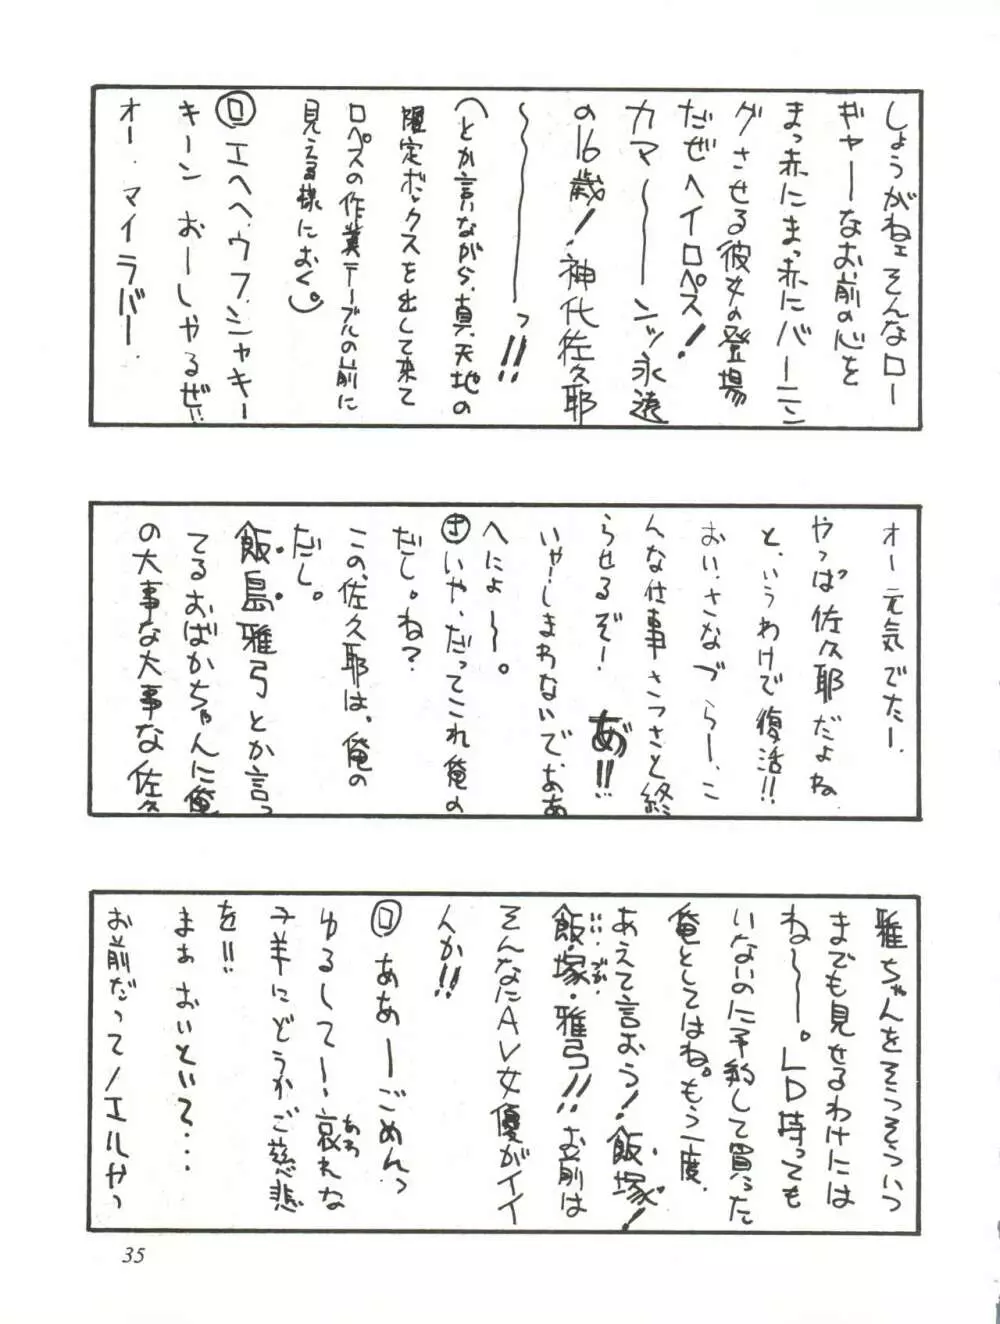 しょうがねェそんなロー
ギャーなお前の心を
まっ赤にまっ赤にバーニン
グさせる彼女の登場
だぜヘイロペス!
カマ〜〜ンッ永遠
の16歳!神代佐久耶
〜〜〜〜っ!!
(とか言いながら、真・天地の
限定ボックスを出して来て
ロペスの作業テーブルの前に
見える様におく。)
ロ エヘヘ、ウフ、シャキー
キーン おーしやるぜ!!
オー・マイラバー.
オー元気でたー.
やっぱ佐久耶だよね.
と、いうわけで復活!!
おい、さなづらー、こ
んな仕事さっさと終
らせるぞー! あ゛!!
いやーしまわないでおあ
へによ〜。
さ いや、だってこれ俺の
だし。ね?
この、佐久耶は、俺の
だし。
飯島雅弓とか言っ
てるおばかちゃんに俺
の大事な大事な佐久
雅ちゃんをそうそういつ
までも見せるわけには
ね〜〜。LD持っても
いないのに予約して買った
俺としてはね。もう一度
あえて言おう!飯塚!
飯・塚・雅弓!!お前は
そんなにAV女優がイイ
んか!!
ロ あぁーごめんっ
ゆるしてー、哀れな
あわ
子羊にどうかご慈悲
を!!
まぁ おいといて・・・
お前だってノエルやっ
35